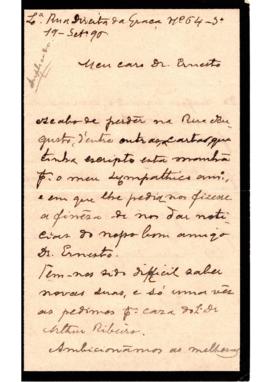 Lª Rua Direita da Graça Nº 64-3º
19-Setº 90
Meu caro Dr. Ernesto
Acabo de perder na Rua Au-
gusto, d'entre outras, cartas que
tinha escripto esta manhã
pª o meu sympathico ami,
e em que lhe pedia nos fizesse
a fineza de nos dar noti-
cias do nosso bom amigo
Dr. Ernesto.
Tem-nos sido difficil saber
novas suas, e só uma vez
as pedimos pª casa do Dr
Arthur Ribeiro.
Ambicionâmos as melhoras